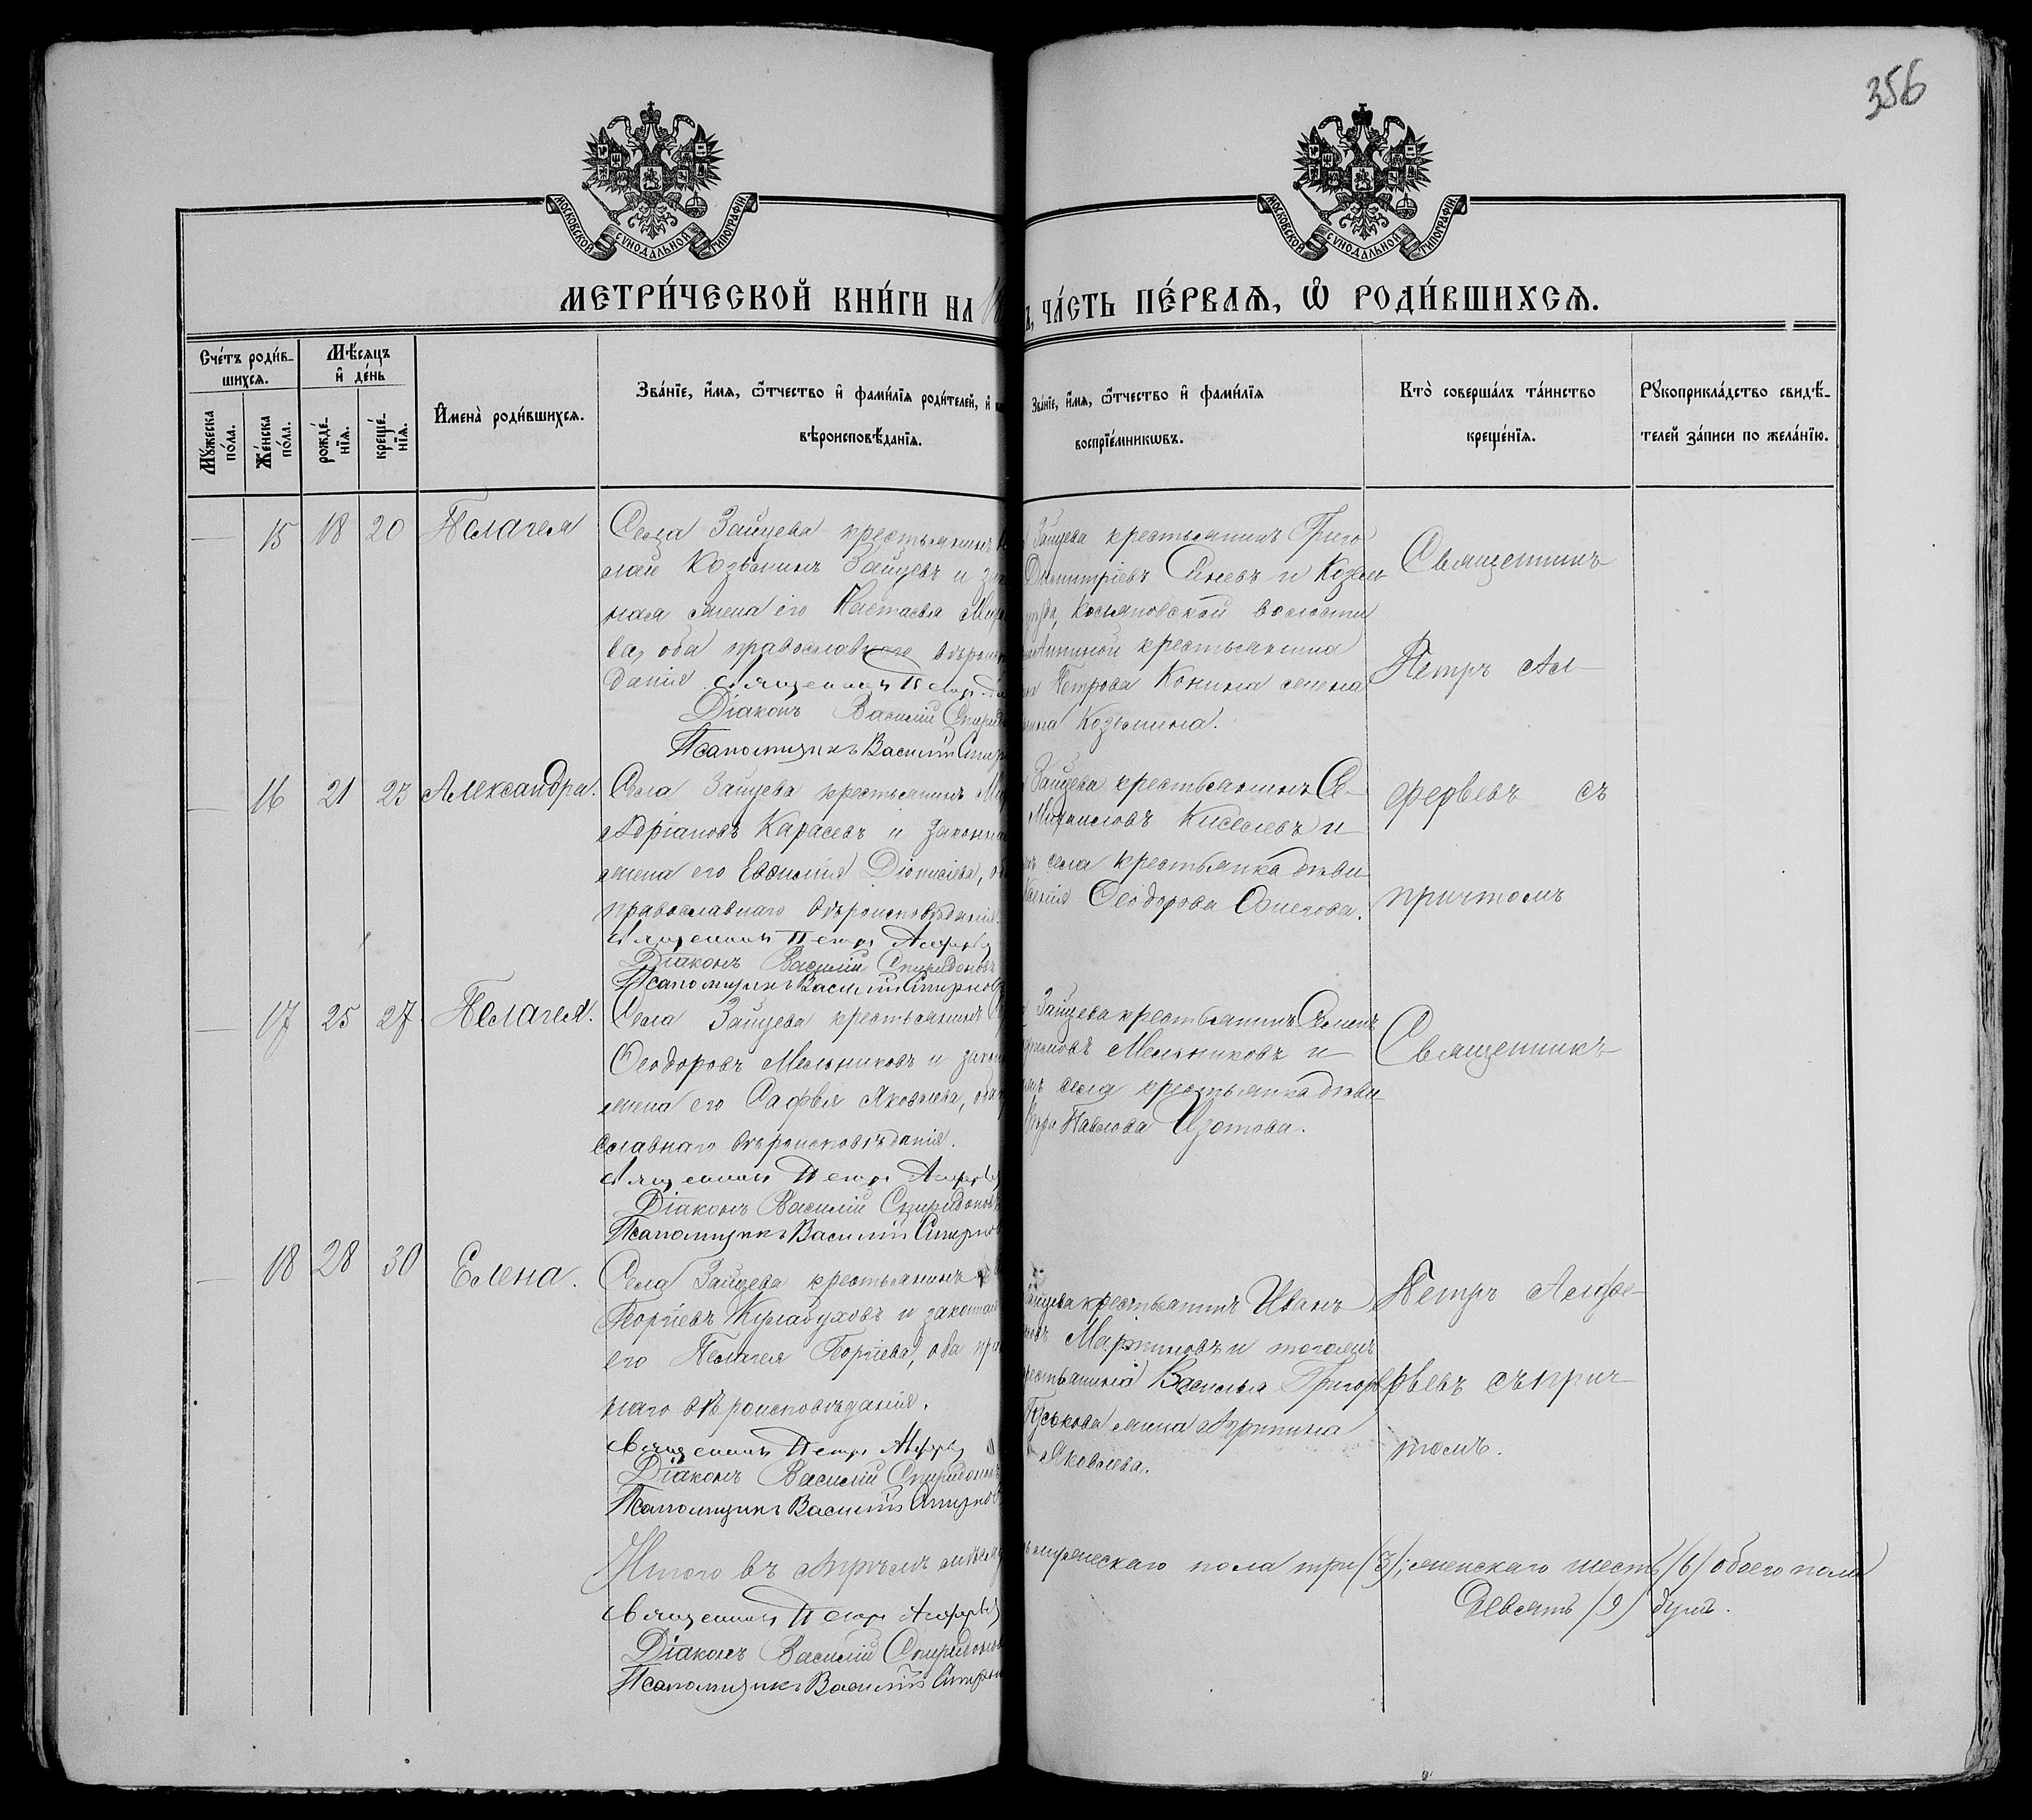 356
МОСКОВСКОЙ СѴНОДАЛЬНОЙ ТИПОГРАФІИ
МОСКОВСКОЙ СѴНОДАЛЬНОЙ ТИПОГРАФІИ
МЕТРИ́ЧЕСКОЙ КНИ́ГИ НА 18
ЧА́СТЬ ПЕ́РВАѦ, Ѽ РОДИ́ВШИХСѦ.
Сче́тъ роди́в-
шихсѧ.
Мѣ́сѧцъ
и҆ де́нь
Мꙋ́жеска
по́ла.
Же́нска
по́ла.
рожде́-
нїѧ.
креще́-
нїѧ.
И҆мена̀ роди́вшихсѧ.
Зва́нїе, и҆́мѧ, ѻ҆́тчество и҆ фами́лїѧ роди́телей, и҆
вѣроисповѣ́данїѧ.
Зва́нїе, и҆́мѧ, ѻ҆́тчество и҆ фами́лїѧ
воспрїе́мникѡвъ.
Кто̀ соверша́лъ та́инство
креще́нїѧ.
Рꙋкоприкла́дство свидѣ́-
телей за́писи по жела́нїю.
— 15 18 20 Пелагея
Села Зайцева крестьянинъ
лай Козьминъ Зайцевъ и
ная жена его Настасья
ва, оба православнаго
данія Священникъ Петръ
Діаконъ Василій
Псаломщикъ Василій
Зайцева крестьянинъ Григо
Димитріевъ Синевъ и
Косьяновской волости
крестьянина
Петрова Конина жена
Козьмина.
Священникъ
Петръ Ал-
— 16 21 23 Александра.
Села Зайцева крестьянинъ
Адріановъ Карасевъ и законная
жена его Евфимія Діонисіева,
православнаго вѣроисповѣданія.
Священникъ Петръ Алферьев
Діаконъ Василій Спиридоновъ
Псаломщикъ Василій Смирнов
Зайцева крестьянинъ Се-
Михаиловъ Киселевъ и
села крестьянка дѣви
Ѳеодорова Ожегова.
ферьевъ съ
причтомъ
— 17 25 27 Пелагея.
Села Зайцева крестьянинъ
Ѳеодоровъ Мельниковъ и
жена его Софья Яковлева,
славнаго вѣроисповѣданія.
Священникъ Петръ Алферьев
Діаконъ Василій Спиридоновъ
Псаломщикъ Василій Смирнов
Зайцева крестьянинъ Семенъ
Мельниковъ и
села крестьянка дѣви
Павлова Изотова.
Священникъ
— 18 28 30 Елена.
Села Зайцева крестьянинъ
Георгіевъ Кулабуховъ и
его Пелагея Георгіева, оба
наго вѣроисповѣданія.
Священникъ Петръ Алферьев
Діаконъ Василій Спиридонов
Псаломщикъ Василій Смирнов
Зайцева крестьянинъ Иванъ
Мартиновъ и тогожъ
крестьянина Василья Григорьев
Гуськова жена Агрипина
Яковлева.
Петръ Алфе-
рьевъ съ прич-
томъ.
Итого въ Апрѣлѣ мѣсяц
мужескаго пола три (3); женскаго шесть (6) обоего пола
девять (9) душъ.
Священникъ Петръ Алферьев
Діаконъ Василій Спиридонов
Псаломщикъ Василій Смирнов